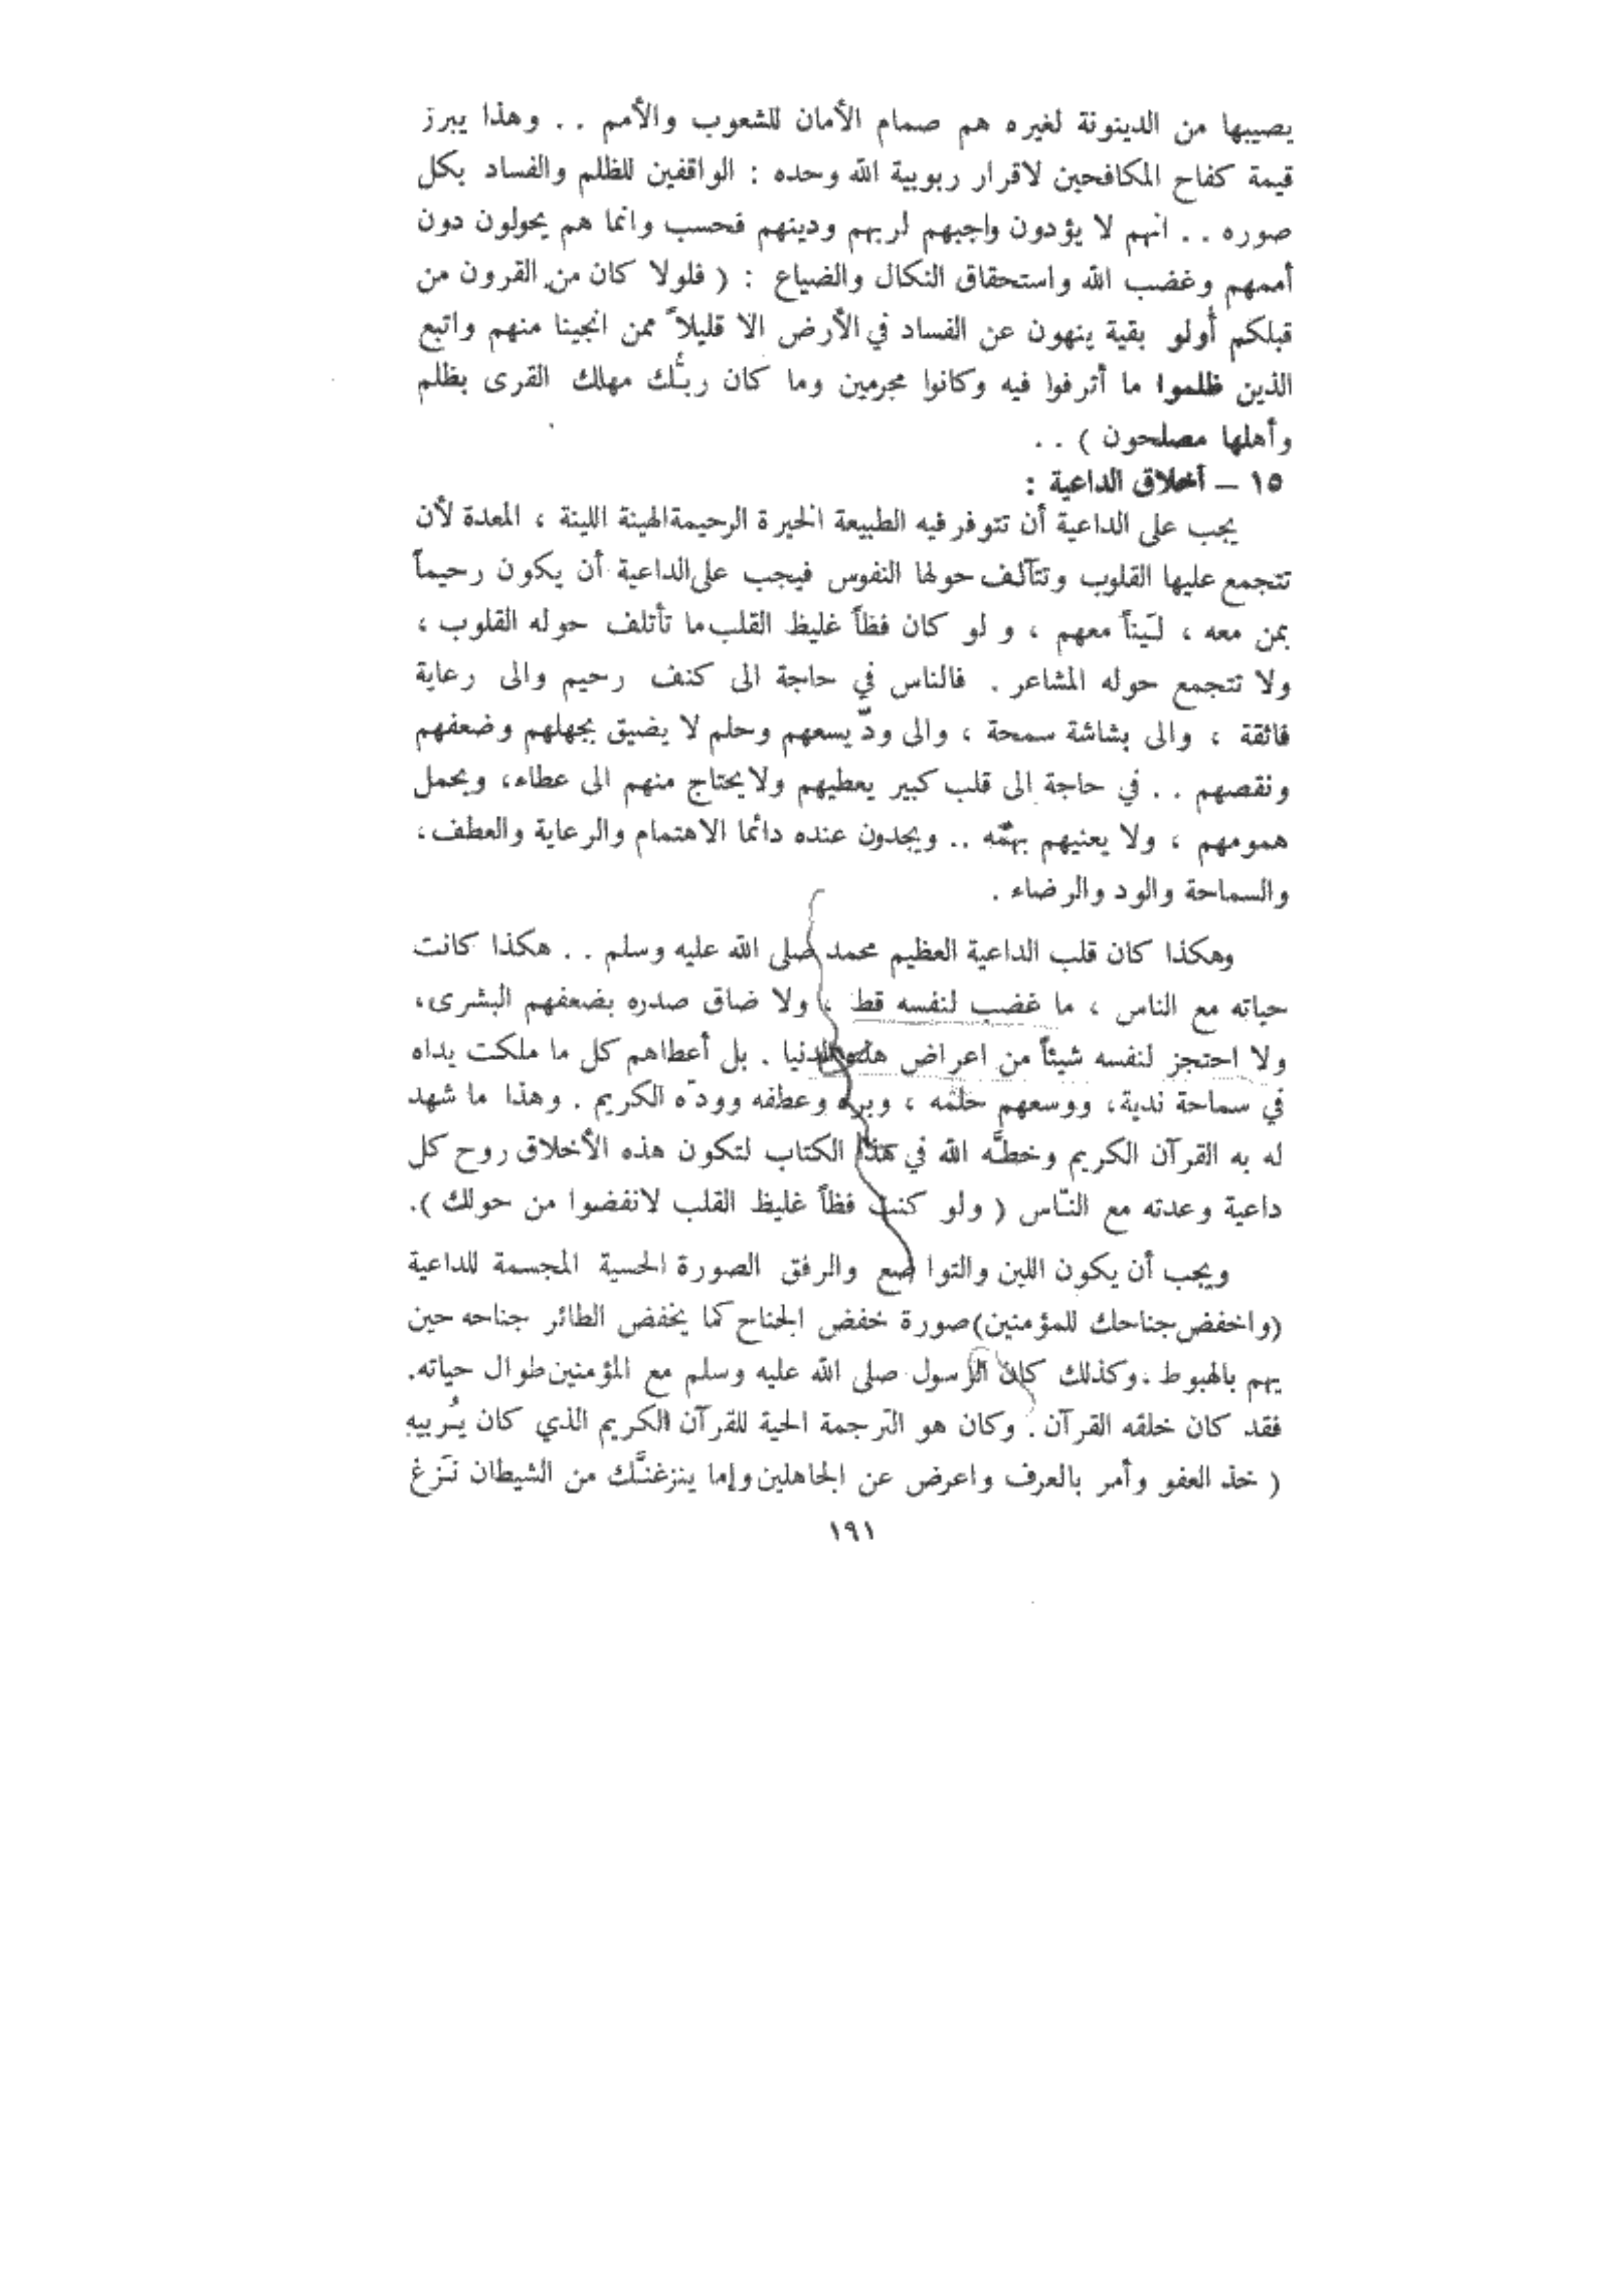 يصيبها من الدينونة لغيره هم صمام الأمان للشعوب والأمم .. وهذا يبرز
قيمة كفاح المكافحين لاقرار ربوبية الله وحده : الواقفين للظلم والفساد بكل
صوره .. انهم لا يؤدون واجبهم لربهم ودينهم فحسب وانما هم يحولون دون
أممهم وغضب الله واستحقاق النكال والضياع : ( فلولا كان من القرون من
قبلكم أُولو بقية ينهون عن الفساد في الأرض الا قليلاً ممن انجينا منهم واتبع
الذين ظلموا ما أترفوا فيه وكانوا مجرمين وما كان ربُّك مهلك القرى بظلم
وأهلها مصلحون ) ..
١٥ – أخلاق الداعية :
يجب على الداعية أن تتوفر فيه الطبيعة الخيرة الرحيمة الهينة اللينة ، المعدة لأن
تتجمع عليها القلوب وتتآلف حولها النفوس فيجب على الداعية أن يكون رحيماً
بمن معه ، ليّناً معهم ، و لو كان فظاً غليظ القلب ما تأتلف حوله القلوب ،
ولا تتجمع حوله المشاعر . فالناس في حاجة الى كنف رحيم والى رعاية
فائقة ، والى بشاشة سمحة ، والى ودّ يسعهم وحلم لا يضيق بجهلهم وضعفهم
ونقصهم .. في حاجة الى قلب كبير يعطيهم ولا يحتاج منهم الى عطاء، ويحمل
همومهم ، ولا يعنيهم بهمّه .. ويجدون عنده دائما الاهتمام والرعاية والعطف،
والسماحة والود والرضاء .
وهكذا كان قلب الداعية العظيم محمد صلى الله عليه وسلم .. هكذا كانت
حياته مع الناس ، ما غضب لنفسه قط ، ولا ضاق صدره بضعفهم البشرى،
ولا احتجز لنفسه شيئاً من اعراض هذه الدنيا . بل أعطاهم كل ما ملكت يداه
في سماحة ندية، ووسعهم حلمه ، وبره وعطفه وودّه الكريم . وهذا ما شهد
له به القرآن الكريم وخطَّه الله في هذا الكتاب لتكون هذه الأخلاق روح كل
داعية وعدته مع النّاس ( ولو كنت فظاً غليظ القلب لانفضوا من حولك ).
ويجب أن يكون اللين والتواضع والرفق الصورة الحسية المجسمة للداعية
(واخفض جناحك للمؤمنين) صورة خفض الجناح كما يخفض الطائر جناحه حين
يهم بالهبوط . وكذلك كان الرسول صلى الله عليه وسلم مع المؤمنين طوال حياته.
فقد كان خلقه القرآن . وكان هو الترجمة الحية للقرآن الكريم الذي كان يُربيه
( خذ العفو وأمر بالعرف واعرض عن الجاهلين وإما ينزغنَّك من الشيطان نَزغ
١٩١